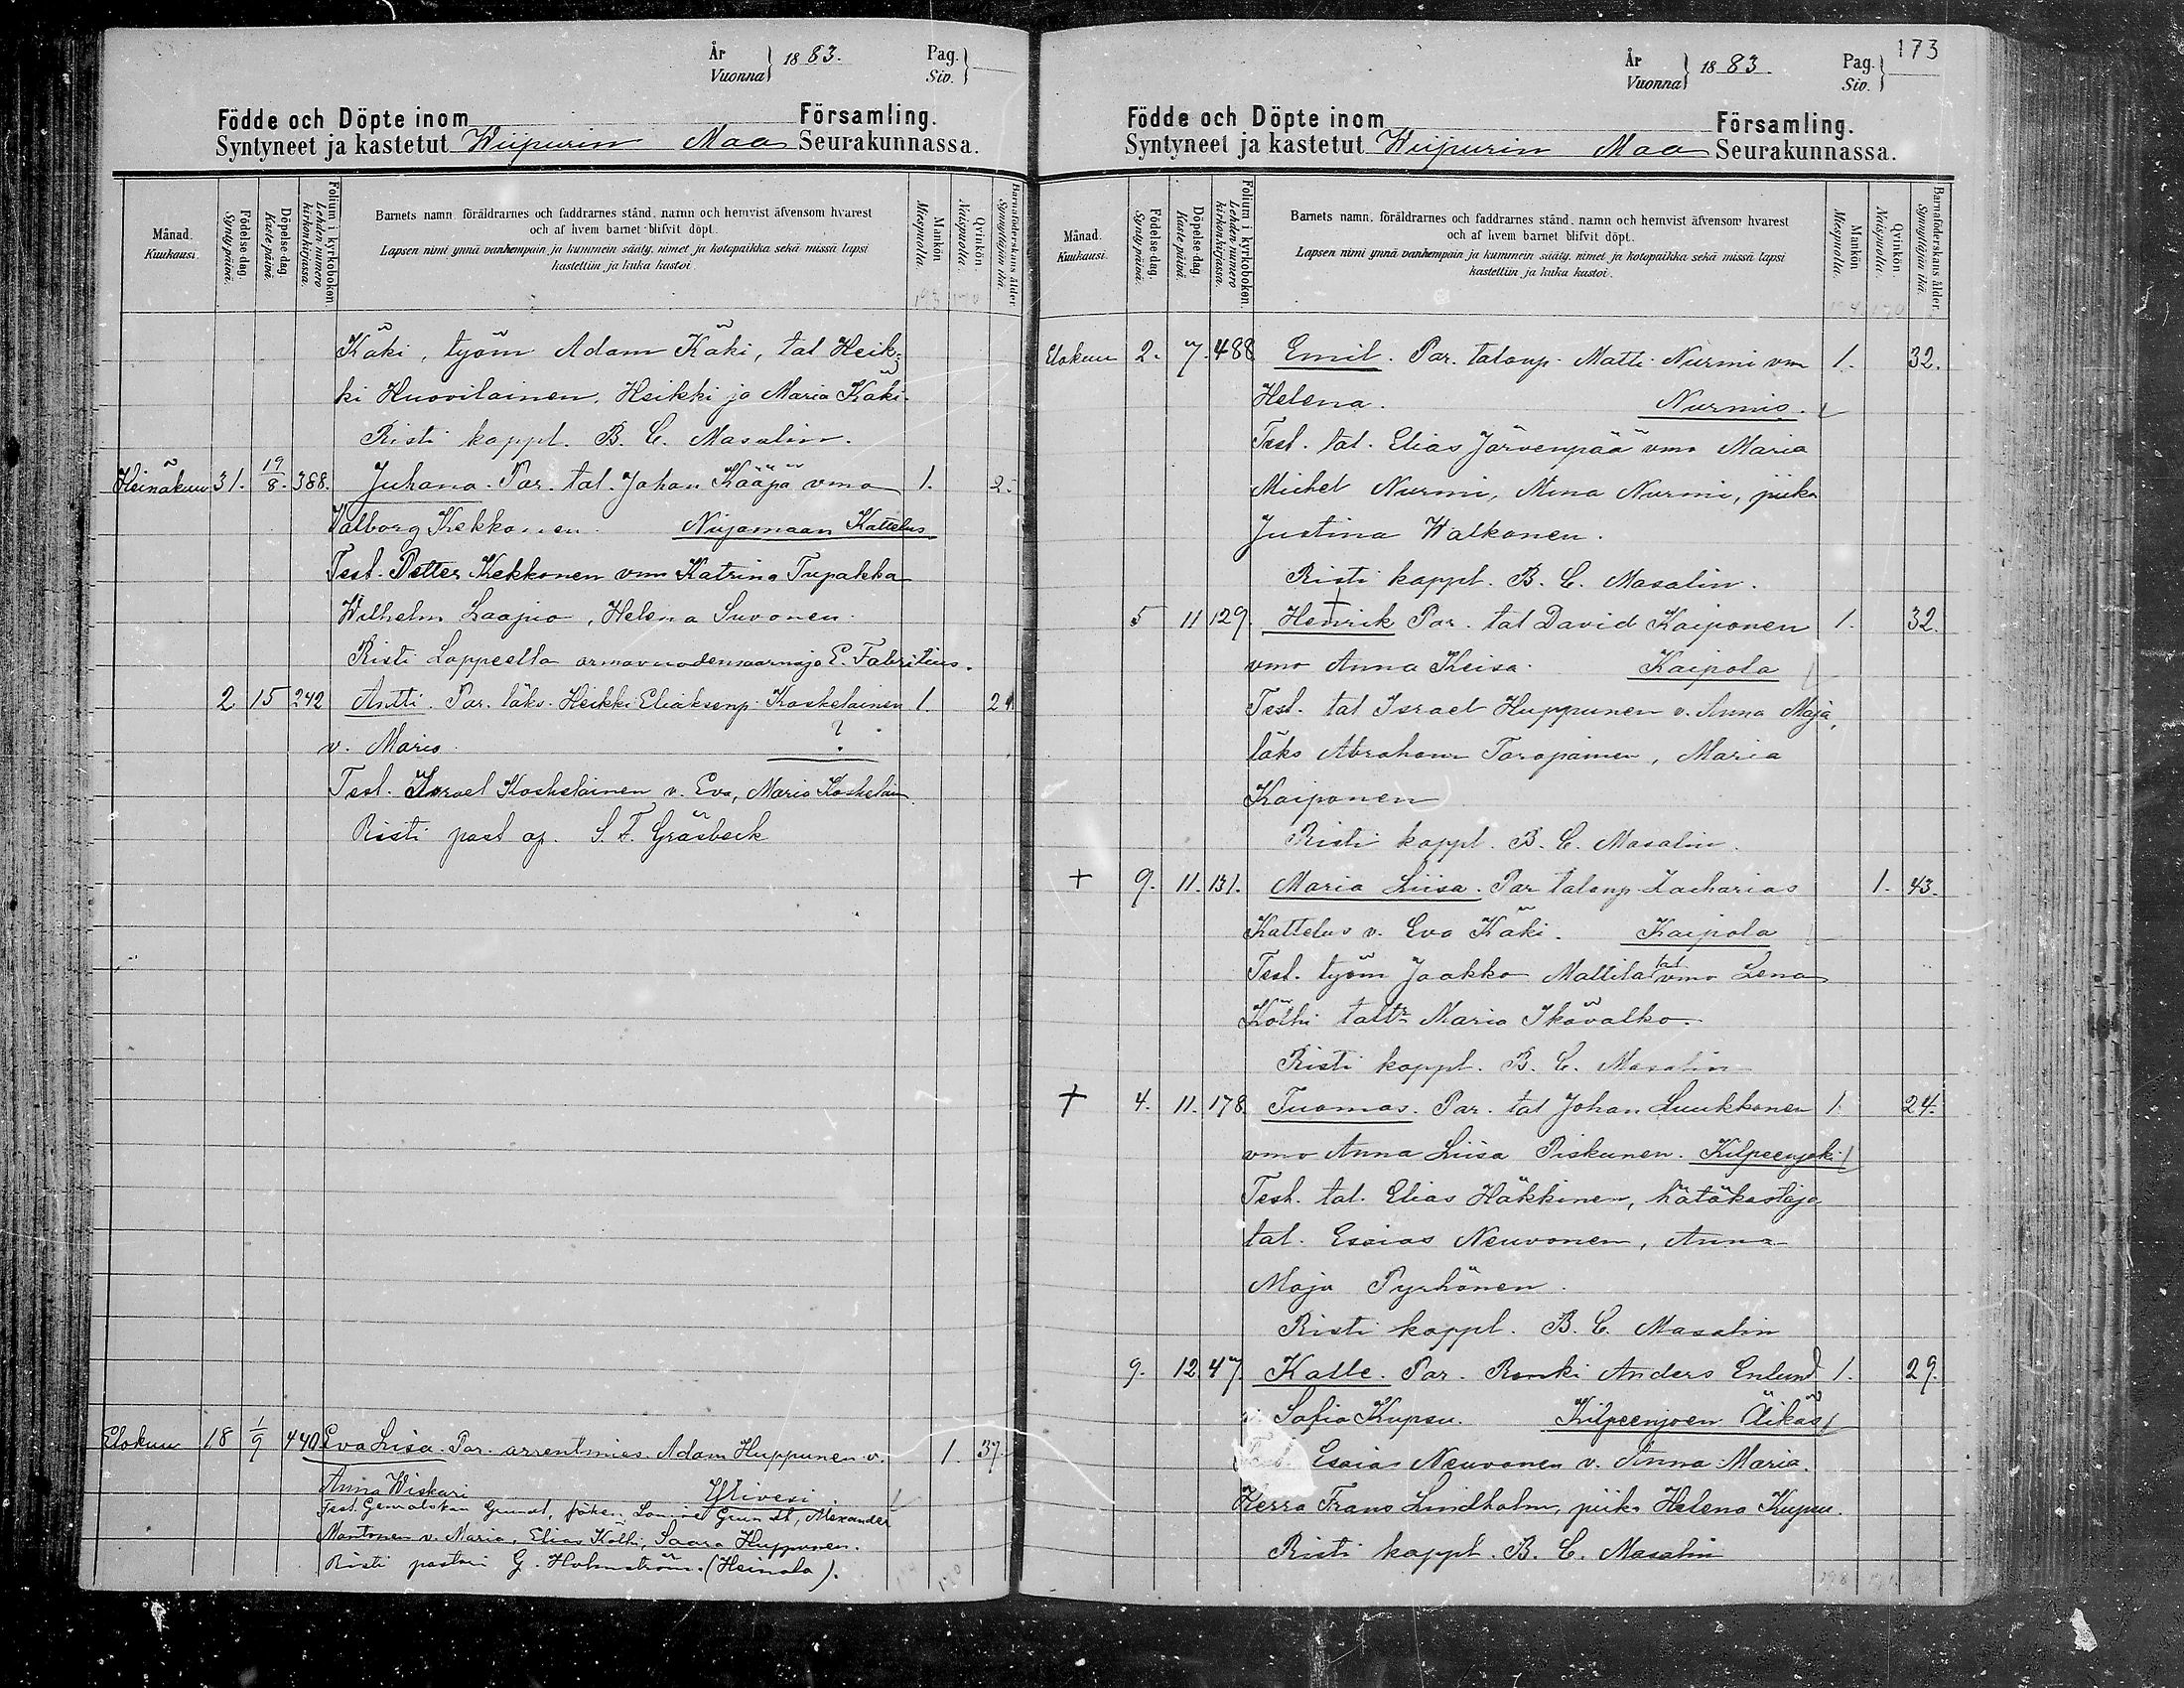 År
Vuonna } 1883.
Pag.
Siv. }
Födde och Döpte inom Församling.
Syntyneet ja kastetut Wiipurin Maa Seurakunnassa.
Månad.
Kuukausi.
Födelse-dag.
Synty päivä.
Döpelse-dag.
Kaste päivä.
Folium i kyrkobokon.
Lehden numero kirkonkirjassa.
Barnets namn, föräldrarnes och faddrarnes stånd, namn och hemvist äfvensom hvarest
och af hvem barnet blifvit döpt.
Lapsen nimi ynnä vanhempain ja kummein sääty, nimet ja kotopaikka sekä missä lapsi
kastettiin ja kuka kastoi.
Mankön
Miespuolia.
Qvinkön.
Naispuolia.
Barnaföderskans ålder.
Synnyttäjän ikä.
Käki, työm Adam Käki, tal Heik-
ki Huovilainen, Heikki ja Maria Käki.
Risti kappl. B. C. Masalin.
Heinäkuu 31. 19/8. 388. Juhana. Par. tal. Johan Kääpä vmo 1. 2.
Valborg Kekkonen. Nuijamaan Kattelus
Test. Petter Kekkonen vmo Katrina Tupakka
Wilhelm Laapio, Helena Suvonen.
Risti Lappeella armovuodensaarnaja E. Fabritius.
2 15 242 Antti. Par. läks. Heikki Eliaksenp. Koskelainen 1. 24.
v. Maria. ?
Test. Israel Koskelainen v. Eva, Maria Koskelain
Risti past ap. S. F. Gräsbeck
Elokuu 18 1/9 440 Eva Lisa. Par. arrentmies. Adam Huppunen v. 1. 37.
Anna Wiskari Ylivesi
Test. Grundt, fröken Louise Grundt, Alexander
Mantonen v. Maria, Elias Kolhi, Saara Huppunen.
Risti pastori G. Holmström. (Heinola).
173
År
Vuonna } 1883.
Pag.
Siv. }
Födde och Döpte inom Församling.
Syntyneet ja kastetut Wiipurin Maa Seurakunnassa.
Månad.
Kuukausi.
Födelse-dag.
Synty päivä.
Döpelse-dag.
Kaste päivä.
Folium i kyrkobokon.
Lehden numero kirkonkirjassa.
Barnets namn, föräldrarnes och faddrarnes stånd, namn och hemvist äfvensom hvarest
och af hvem barnet blifvit döpt.
Lapsen nimi ynnä vanhempain ja kummein sääty, nimet ja kotopaikka sekä missä lapsi
kastettiin ja kuka kastoi.
Mankön
Miespuolia.
Qvinkön.
Naispuolia.
Barnaföderskans ålder.
Synnyttäjän ikä.
Elokuu 2. 7. 488 Emil. Par. talonp. Matti Nurmi vm 1. 32.
Helena. Nurmis.
Test. tal. Elias Järvenpää vmo Maria
Michel Nurmi, Mina Nurmi, piika
Justina Walkonen.
Risti kappl. B. C. Masalin.
5 11 129. Henrik Par. tal David Kaiponen 1. 32.
vmo Anna Keisa. Kaipola
Test. tal Israel Huppunen v. Anna Maja,
läks Abraham Taropainen, Maria
Kaiponen
Risti kappl. B. C. Masalin.
+ 9. 11. 131. Maria Liisa. Par talonp Zacharias 1. 43.
Kattelus v. Eva Käki. Kaipola
Test. työm Jaakko Mattila tal vmo Lena
Kölhi taltr Maria Ikävalko.
Risti kappl. B. C. Masalin
+ 4. 11. 178 Tuomas. Par. tal Johan Luukkonen 1. 24.
vmo Anna Liisa Piskunen. Kilpeenjoki
Test. tal. Elias Häkkinen, hätäkastaja
tal. Esaias Neuvonen, Anna
Maja Pyrhönen.
Risti kappl. B. C. Masalin
9. 12. 47. Kalle. Par. Renki Anders Enlund 1. 29.
v. Sofia Kupsu. Kilpeenjoen Äikäs
Test. Esaias Neuvonen v. Anna Maria.
Herra Frans Lindholm, piika Helena Kupsu.
Risti kappl. B. C. Masalin